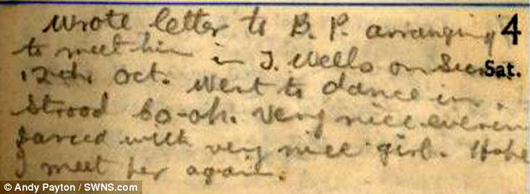 Wrote letter to B. P. arranging 4
to meet him in T. Wells on Sun. Sat.
12th Oct. Went to dance in
Strood Co-op. Very nice evenin
danced with very nice girl. Hope
I meet her again.
© Andy Payton / SWNS.com